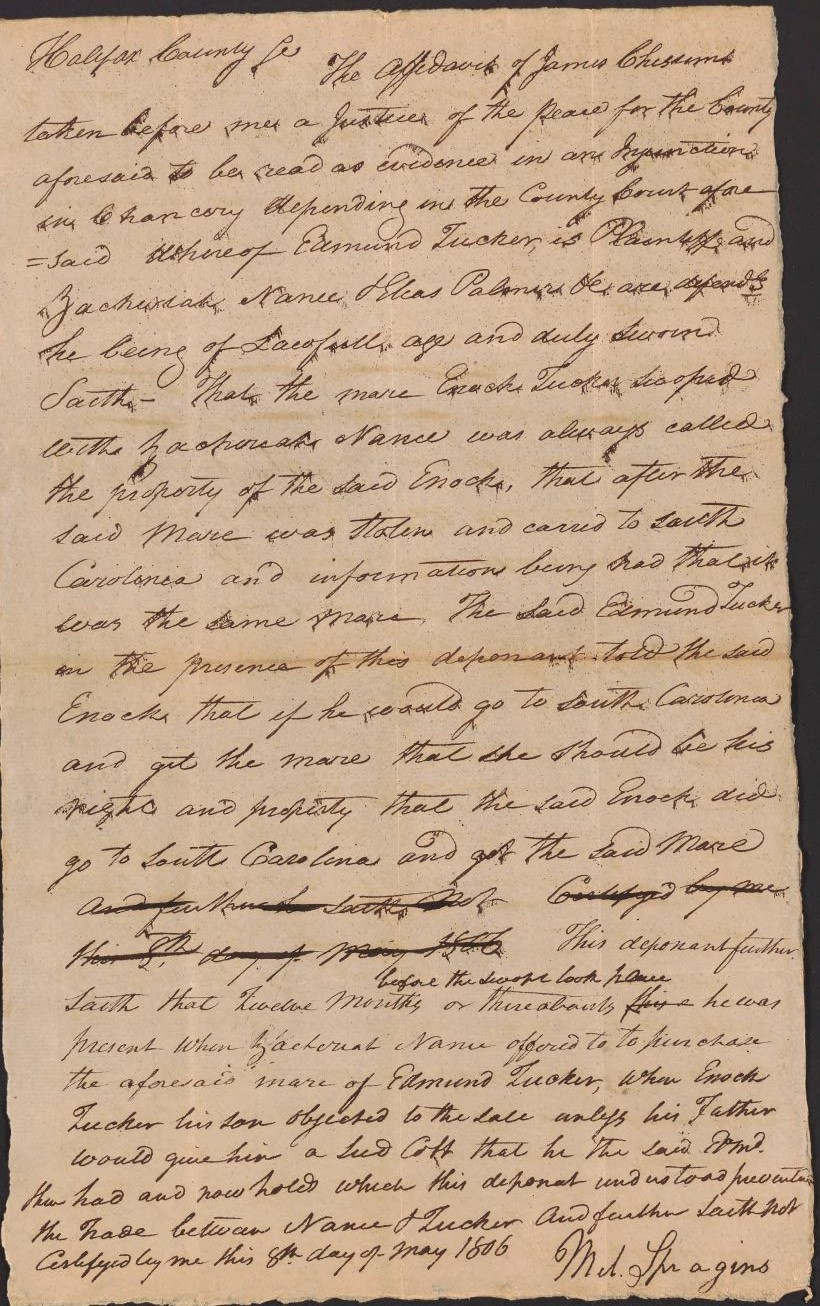 Halifax County Sc The Affidavit of James Chissum
taken before me a Justice of the peace for the County
aforesaid to be read as evidence in an Injunction
in Chancery depending in the County Court afore
=said Whereof Edmund Tucker is Plaintiff and
Zacheriah Nance & Elias Palmer &c are defendts
he being of Lawfull age and duly sworn
Saith - That the mare Enoch Tucker swoped
with Zacheriah Nance was always called
the property of the said Enoch, that after the
said mare was stolen and carred to south
Carolinea and information being had that it
was the same mare, The said Edmund Tucker
in the presence of this deponant told the said
Enoch that if he would go to South Carolinea
and get the mare that she should be his
right and property that the said Enoch did
go to South Carolina and got the said Mare
And further saith Not Certifyed by me
this 8th day of May 1806 This deponant further
before the swope took place
saith that Twelve Months or thereabouts he was
present when Zacheriah Nance offered to to purchase
the aforesaid mare of Edmund Tucker, when Enoch
Tucker his son objected to the sale unless his Father
would give him a Sud Colt that he the said Edmd.
then had and now holds which this deponat understood prevented
the Trade between Nance & Tucker And further saith not
Certifyed by me this 8th day of May 1806 Mel. Spragins